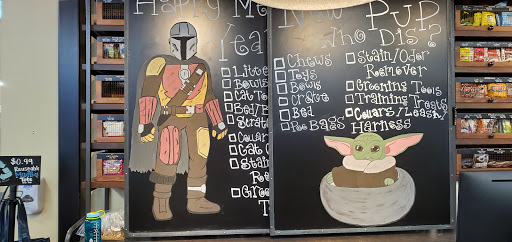 Happy Me
Yea
Litte
Bowls
Cat To
Bed/B
Scrat
Collar
Cat C
Stain
Re
Groo
T
New Pup
Who Dis?
Chews
Toys
Bowls
Crate
Bed
Poo Bags
Stain/Odor
Remover
Grooming Tools
Training Treats
Collars/Leash/
Harness
$0.99
Reusable